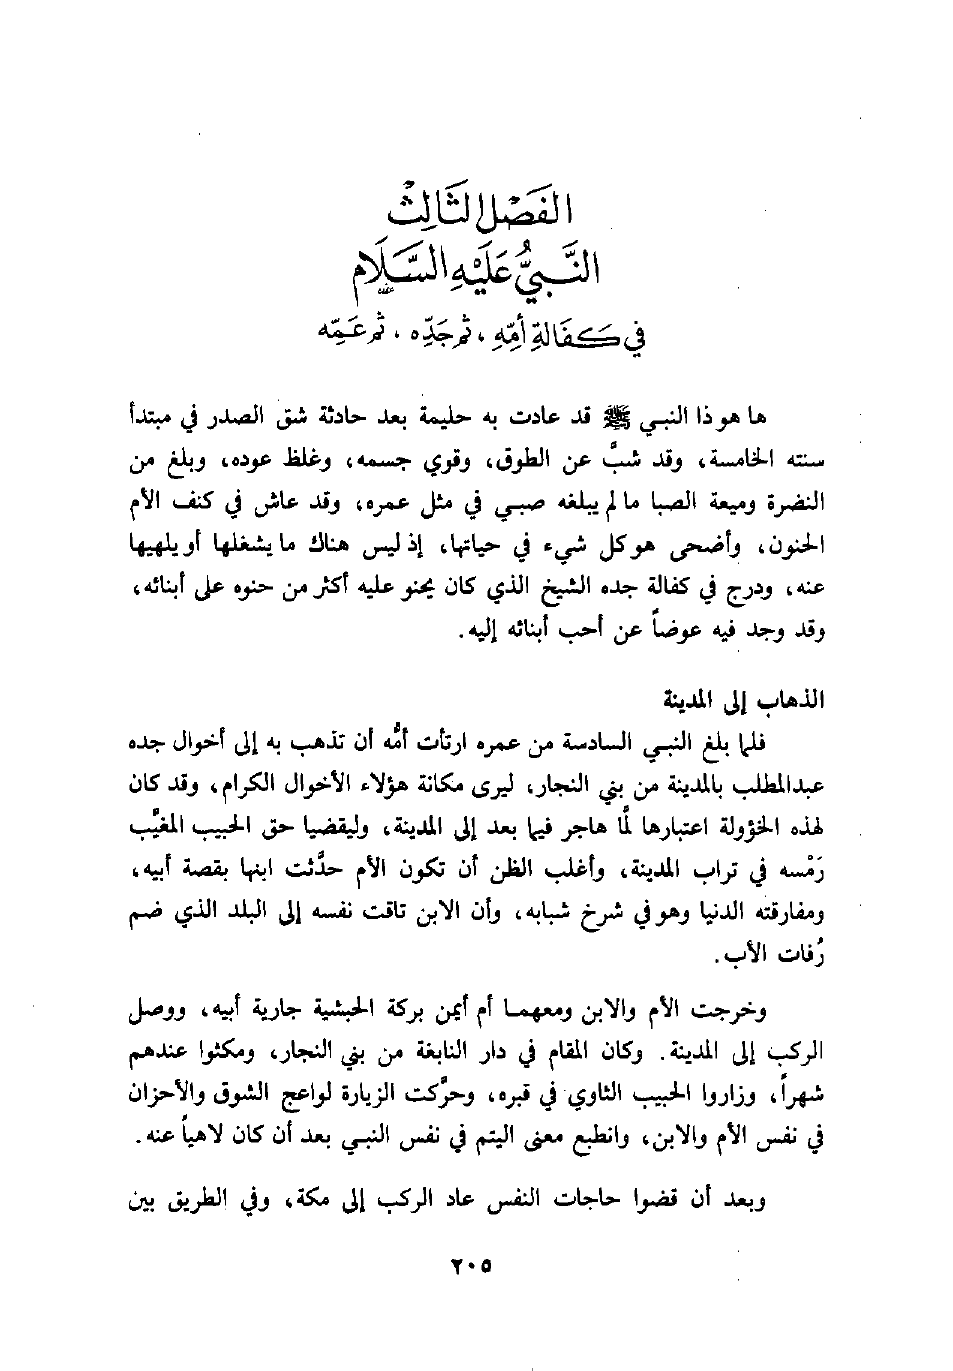 الفَصْل الثَالِث
النَّبِيُّ عَلَيْهِ السَّلَام
في كَفَالَةِ أُمِّهِ ، ثم جَدِّه ، ثم عَمِّه
ها هو ذا النبي ﷺ قد عادت به حليمة بعد حادثة شق الصدر في مبتدأ
سنته الخامسة، وقد شبَّ عن الطوق، وقوي جسمه، وغلظ عوده، وبلغ من
النضرة وميعة الصبا ما لم يبلغه صبي في مثل عمره، وقد عاش في كنف الأم
الحنون، وأضحى هو كل شيء في حياتها، إذ ليس هناك ما يشغلها أو يلهيها
عنه، ودرج في كفالة جده الشيخ الذي كان يحنو عليه أكثر من حنوه على أبنائه،
وقد وجد فيه عوضاً عن أحب أبنائه إليه.
الذهاب إلى المدينة
فلما بلغ النبي السادسة من عمره ارتأت أمُّه أن تذهب به إلى أخوال جده
عبدالمطلب بالمدينة من بني النجار، ليرى مكانة هؤلاء الأخوال الكرام، وقد كان
لهذه الخؤولة اعتبارها لمَّا هاجر فيما بعد إلى المدينة، وليقضيا حق الحبيب المغيَّب
رَمْسه في تراب المدينة، وأغلب الظن أن تكون الأم حدَّثت ابنها بقصة أبيه،
ومفارقته الدنيا وهو في شرخ شبابه، وأن الابن تاقت نفسه إلى البلد الذي ضم
رُفات الأب.
وخرجت الأم والابن ومعهما أم أيمن بركة الحبشية جارية أبيه، ووصل
الركب إلى المدينة. وكان المقام في دار النابغة من بني النجار، ومكثوا عندهم
شهراً، وزاروا الحبيب الثاوي في قبره، وحرَّكت الزيارة لواعج الشوق والأحزان
في نفس الأم والابن، وانطبع معنى اليتم في نفس النبي بعد أن كان لاهياً عنه.
وبعد أن قضوا حاجات النفس عاد الركب إلى مكة، وفي الطريق بين
٢٠٥